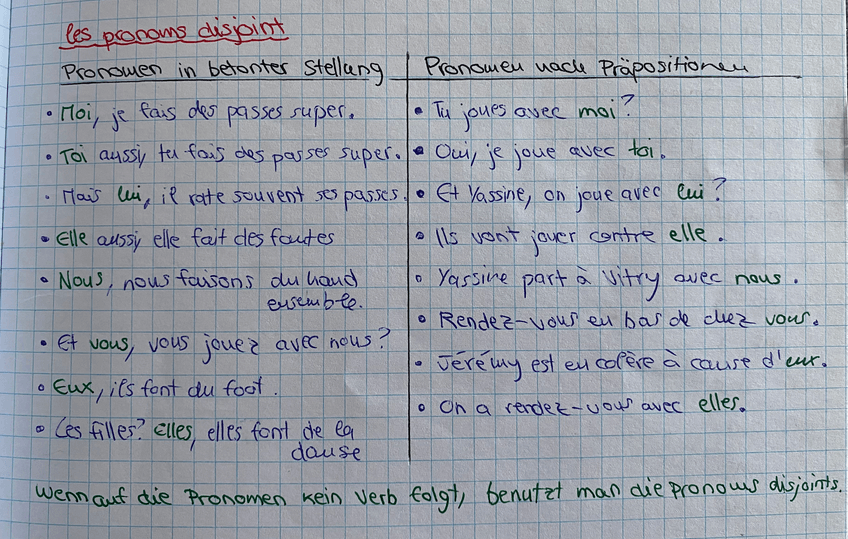 les pronoms disjoint
Pronomen in betonter Stellung
• Moi, je fais des passes super.
• Toi aussi, tu fais des passes super.
• Mais lui, il rate souvent ses passes.
• Elle aussi, elle fait des fautes
• Nous, nous faisons du hand
ensemble.
• Et vous, vous jouez avec nous?
• Eux, ils font du foot.
• Les filles? Elles, elles font de la
danse
Pronomen nach Präpositionen
• Tu joues avec moi?
• Oui, je joue avec toi.
• Et Yassine, on joue avec lui?
• Ils vont jouer contre elle.
• Yassine part à Vitry avec nous.
• Rendez-vous en bas de chez vous.
• Jérémy est en colère à cause d'eux.
• On a rendez-vous avec elles.
Wenn auf die Pronomen kein Verb folgt, benutzt man die pronoms disjoints.